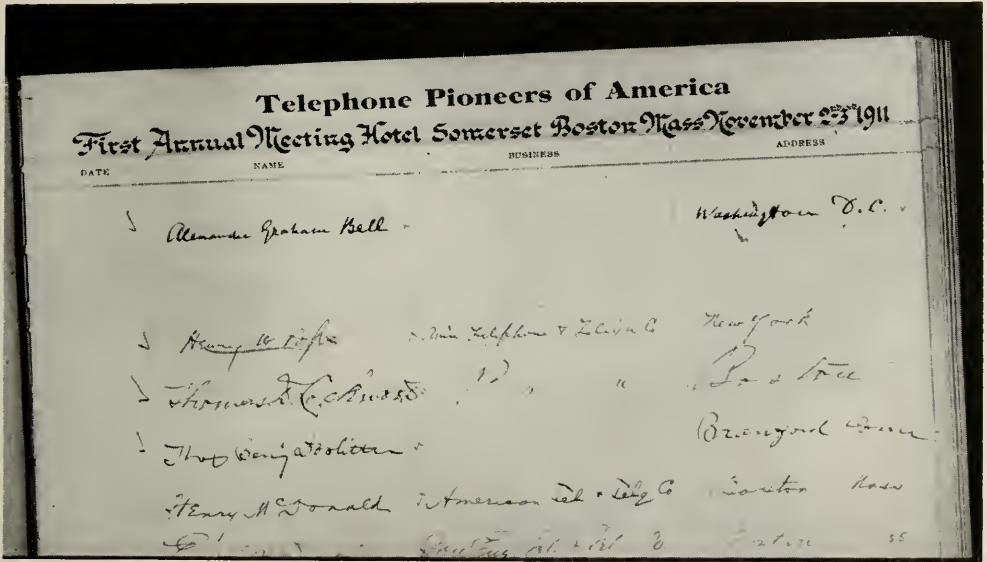 Telephone Pioneers of America
First Annual Meeting Hotel Somerset Boston Mass November 2nd-3rd 1911
DATE NAME BUSINESS ADDRESS
Alexander Graham Bell Washington D.C.
Henry W Telephone & Co New York
Thomas D. Lockwood " " Boston
Thos Benj Doolittle Branford Conn
Henry McDonald American Tel & Telg Co Boston Mass